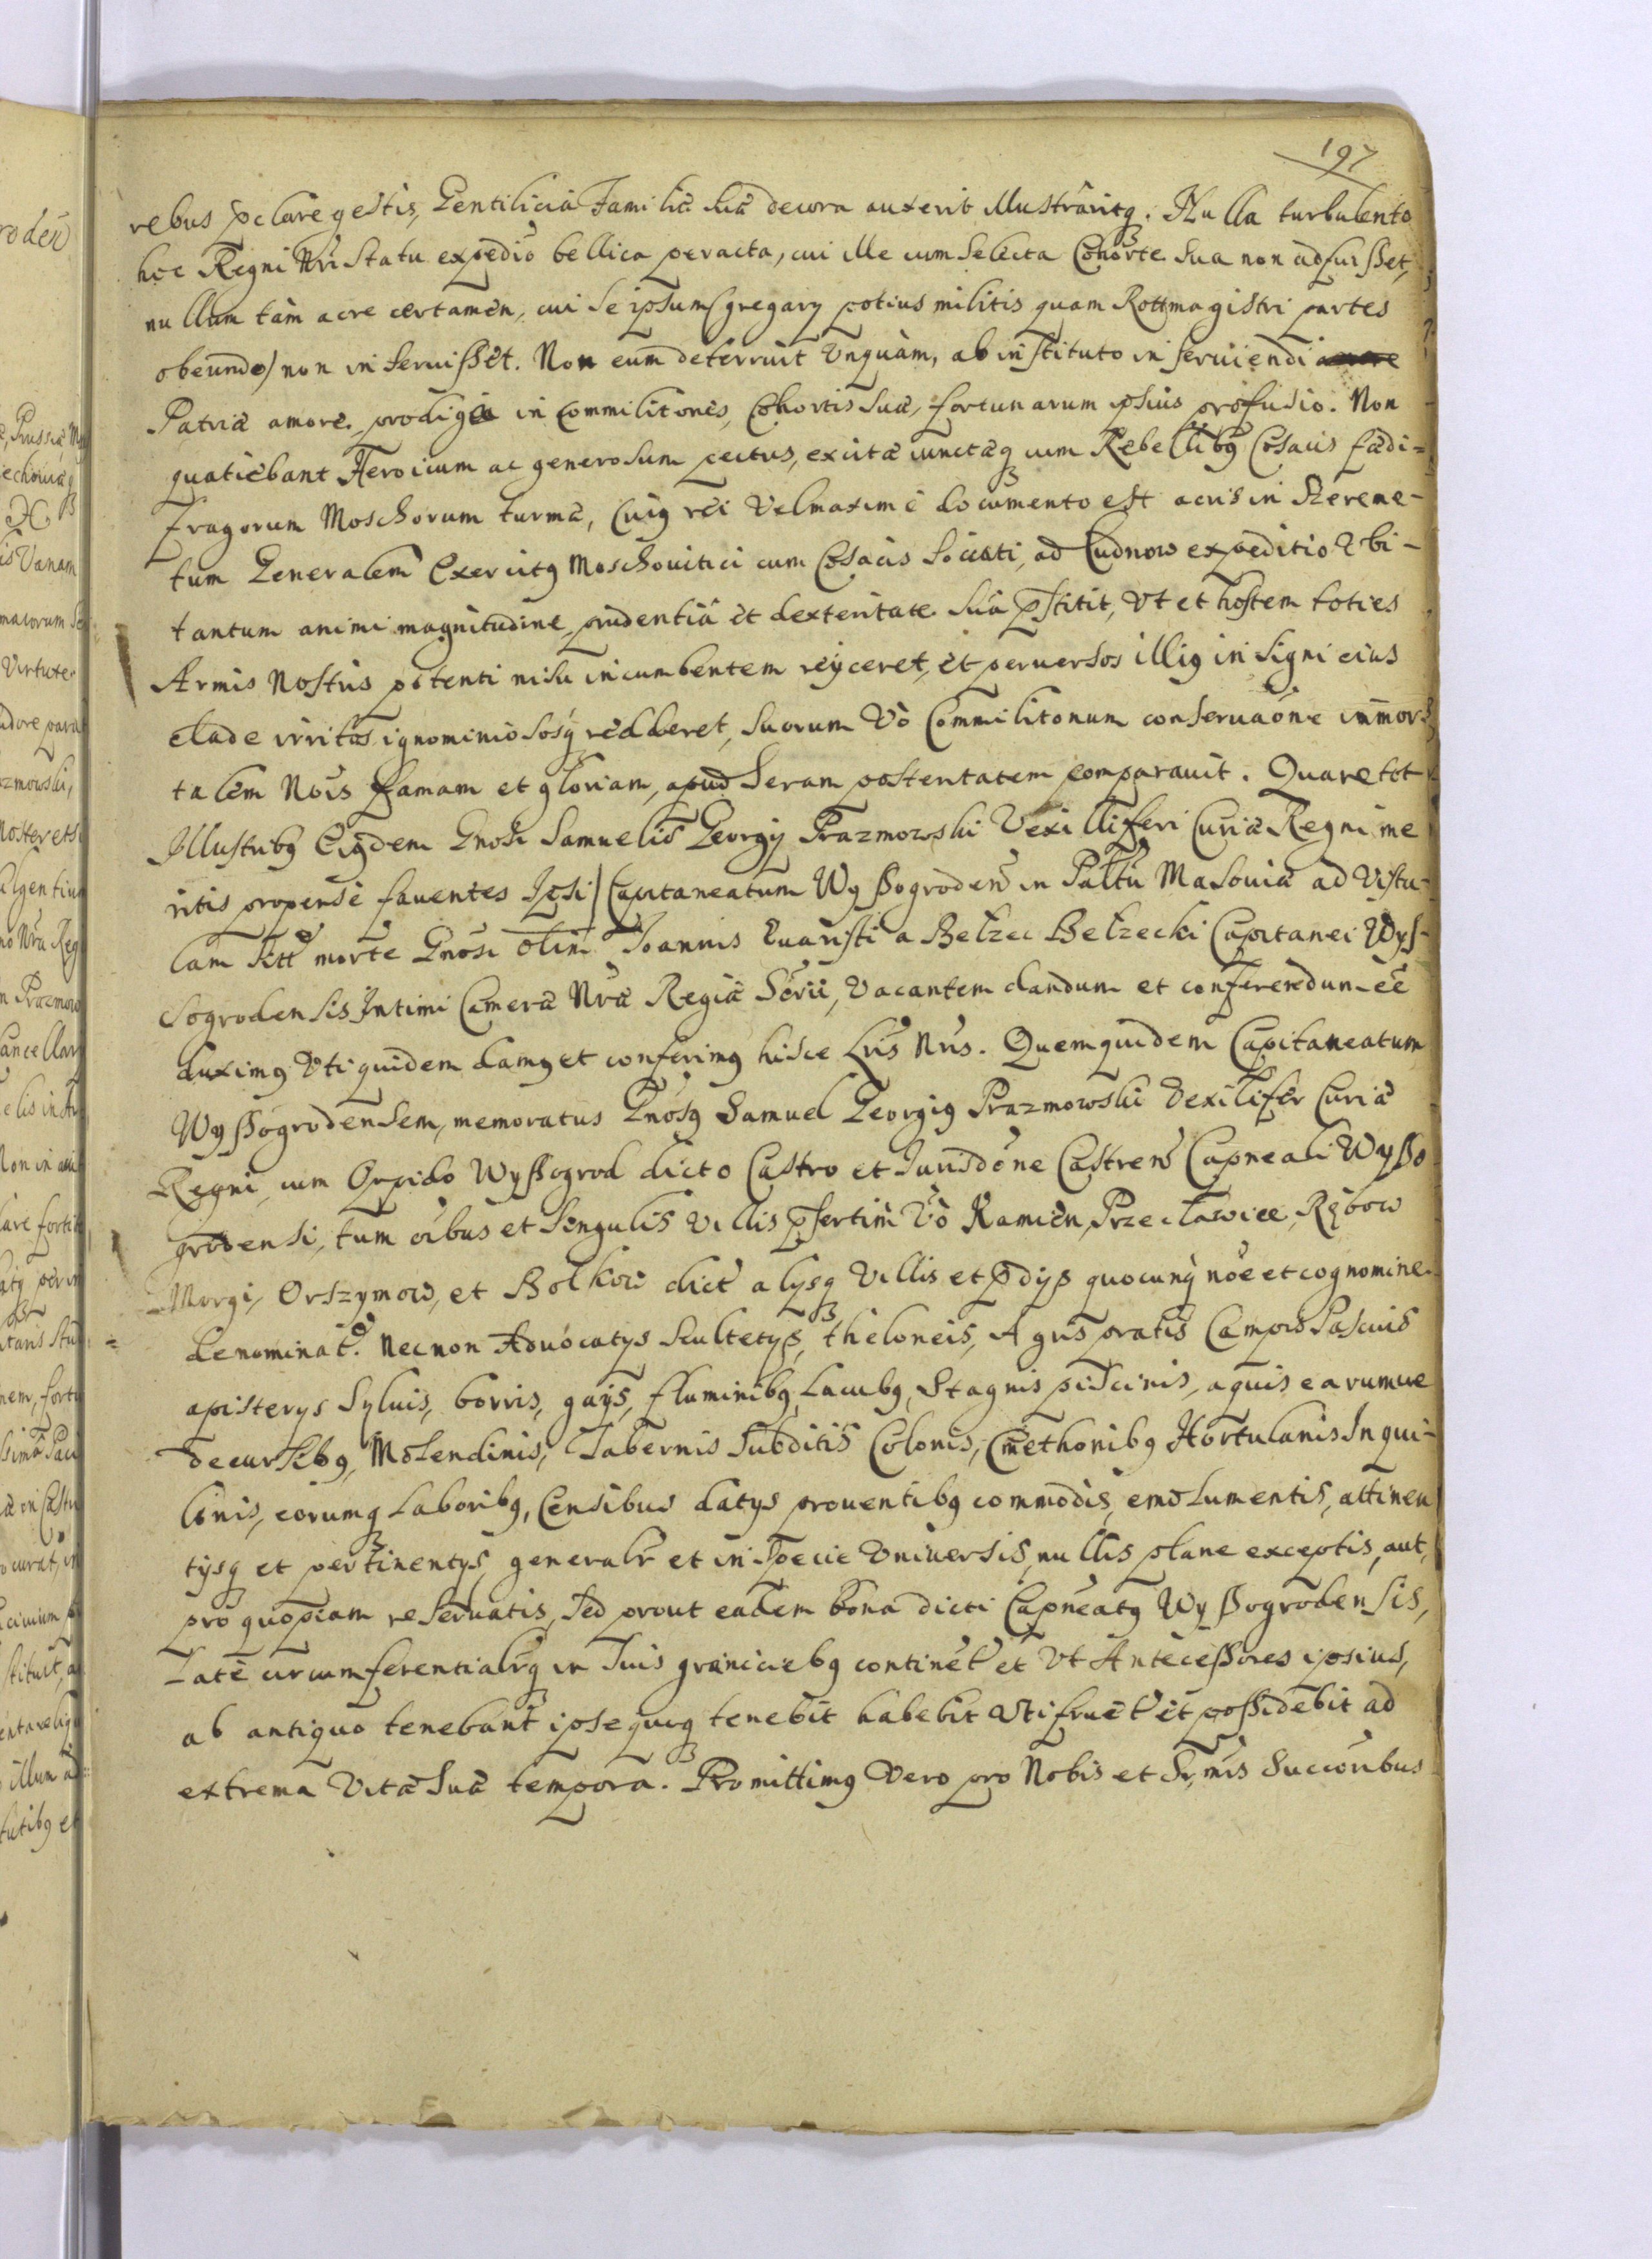 197
rebus pclare gestis, Gentilicia Familiæ suæ decora auxerit illustraritq. Nulla turbulento
hoc Regni Nri statu expedio bellica peracta, cui ille cum selecta Cohorte sua non adfuisset,
nullum tam acre certamen, cui se ipsum (gregarÿ potius militis quam Rottmagistri partes
obeundo) non inseruisset. Non eum deterruit Unquàm, ab instituto inseruiendi
Patriæ amore, prodiga in Commilitones, Cohortis suæ, fortunarum ipsius profusio. Non
quatiebant Heroicum ac generosum pectus, excitæ cunctæq cum Rebellibq Cosacis fædi=
fragorum Moschorum turmæ, Cuiq rei Vel maximè documento est acris in Szereme-
tum Generalem Exercitq Moschouitici cum Cosacis sociati, ad Cudnow expeditio Vbi-
tantum animi magnitudine, prudentiâ et dexteritate suâ pstitit, Vt et hostem toties
Armis Nostris potenti nisu incumbentem reÿceret, et peruersos illiq insigni eius
clade irritos ignominiososq redderet, suorum Vò Commilitonum conseruaone immor=
talem Nois famam et gloriam, apud seram posteritatem comparauit. Quare tot
Illustribq Eiqdem Gnosi Samuelis Georgÿ Prazmowski Vexilliferi Curiæ Regni me
ritis propense fauentes Ipsi Capitaneatum Wyssogroden in Paltu Masouiæ ad Vistu-
lam sitt morte Gnosi olim Joannis Euaristi a Belzec Belzecki Capitanei Wys-
sogrodensis Intimi Cameræ Nræ Regiæ Sorii, Vacantem dandum et conferendum eë
duximq Vti quidem damq et conferimq hisce Lris Nris. Quemquidem Capitaneatum
Wyssogrodensem, memoratus Gnosq Samuel Georgiq Prazmowski Vexillifer Curiæ
Regni, cum Oppido Wyssogrod dicto Castro et Jurisdone Castren Capneali Wysso
grodensi, tum oibus et singulis Villis psertim Vò Kamien, Przeclawice, Rębow
Morgi, Orszymow, et Bolkow dict alÿsq Villis et pdÿs quocunq noe et cognomine
denominat. Necnon Aduocatÿs Scultetÿs, theloneis, Agris pratis Campis Pascuis
apisterÿs Syluis, borris, gaÿs, fluminibq, Lacubq, Stagnis piscinis, aquis earumue
decursibq, Molendinis, Tabernis Subditis Colonis, Cmethonibq Hortulanis Inqui-
linis, eorumq Laboribq, Censibus datÿs prouentibq commodis, emolumentis, attinen
tÿsq et pertinentÿs, generalr et in specie Vniuersis, nullis plane exceptis, aut
pro quopiam reseruatis, sed prout eadem bona dicti Capneatq Wyssogrodensis,
Latè circumferentialrq in suis graniciebq continet et Vt Antecessores ipsius,
ab antiquo tenebant ipse quoq tenebit habebit Vtifruet et possidebit ad
extrema Vitæ suæ tempora. Promittimq Vero pro Nobis et Srmis Succoribus